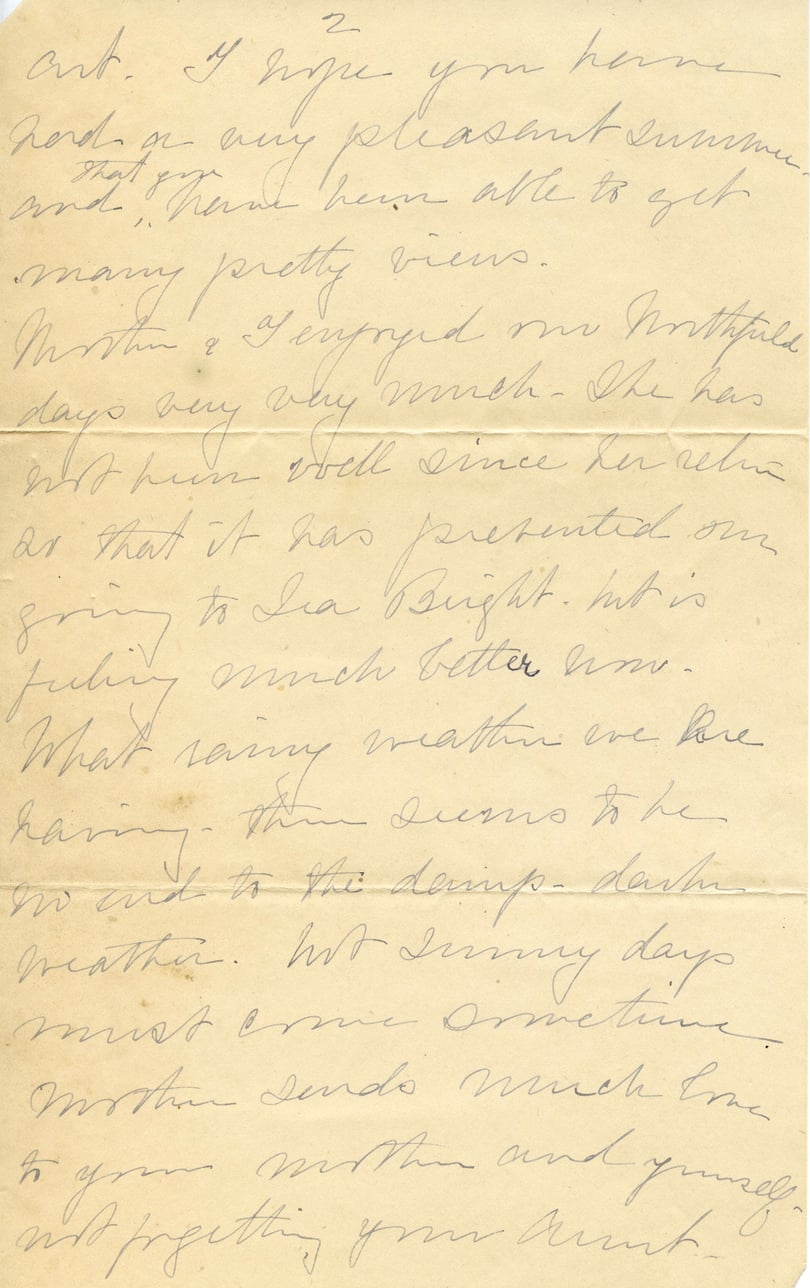 2
art. I hope you have
had a very pleasant summer.
that you
and, have been able to get
many pretty views.
Mother & I enjoyed our Northfield
days very very much - She has
not been well since her return
so that it has prevented our
going to Sea Bright. but is
feeling much better now.
What rainy weather we are
having - there seems to be
no end to the damp - dark
weather. but sunny days
must come sometime.
Mother sends much love
to your mother and yourself -
not forgetting your Aunt -